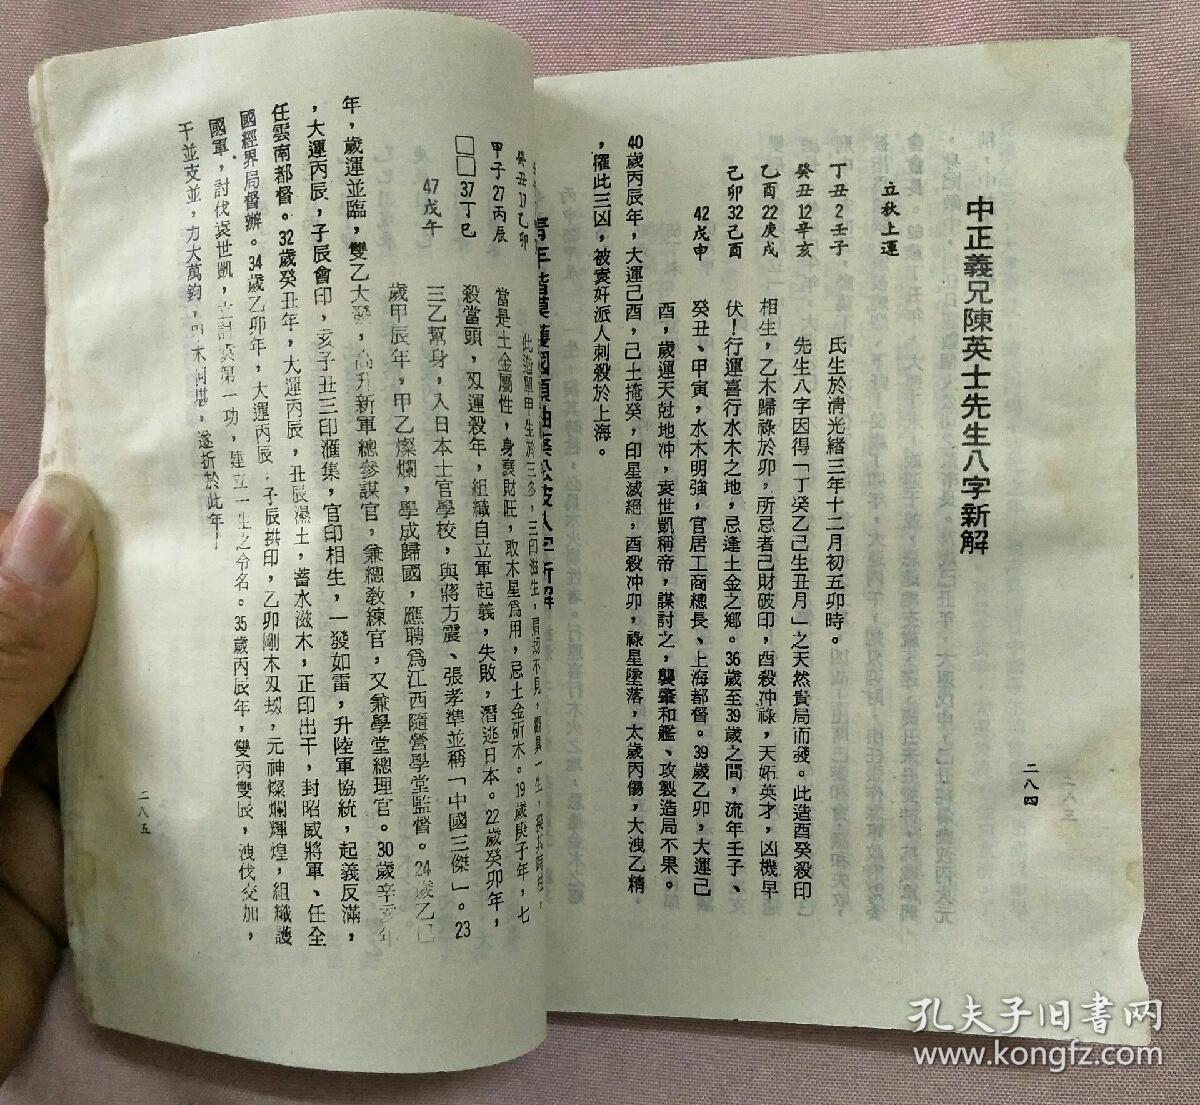 中正義兄陳英士先生八字新解
立秋上運
丁丑2壬子
癸丑12辛亥
乙酉22庚戌
己卯32己酉
42戊申
氏生於清光緒三年十二月初五卯時。
先生八字因得「丁癸乙己生丑月」之天然貴局而發。此造酉癸殺印
相生，乙木歸祿於卯，所忌者己財破印，酉殺冲祿，天妬英才，凶機早
伏！行運喜行水木之地，忌逢土金之鄉。36歲至39歲之間，流年壬子、
癸丑、甲寅，水木明強，官居工商總長、上海都督。39歲乙卯，大運己
酉，歲運天尅地冲，袁世凱稱帝，謀討之，襲肇和艦、攻製造局不果。
40歲丙辰年，大運己酉，己土掩癸，印星滅絕，酉殺冲卯，祿星墜落，太歲丙傷，大洩乙精
，罹此三凶，被袁奸派人刺殺於上海。
二八四
癸丑17乙卯
甲子27丙辰
□□37丁巳
47戊午
當是土金屬性，身衰財旺，取木星爲用，忌土金斫木。19歲庚子年，七
殺當頭，刄運殺年，組織自立軍起義，失敗，潛逃日本。22歲癸卯年，
三乙幫身，入日本士官學校，與蔣方震、張孝準並稱「中國三傑」。23
歲甲辰年，甲乙燦爛，學成歸國，應聘爲江西隨營學堂監督。24歲乙巳
年，歲運並臨，雙乙大發，高升新軍總參謀官，兼總教練官，又兼學堂總理官。30歲辛亥年
，大運丙辰，子辰會印，亥子丑三印滙集，官印相生，一發如雷，升陸軍協統，起義反滿，
任雲南都督。32歲癸丑年，大運丙辰，丑辰濕土，蓄水滋木，正印出干，封昭威將軍、任全
國經界局督辦。34歲乙卯年，大運丙辰，子辰拱印，乙卯剛木刄刼，元神燦爛輝煌，組織護
國軍，討伐袁世凱，立討袁第一功，建立一生之令名。35歲丙辰年，雙丙雙辰，洩伐交加，
干並支並，力大萬鈞，甲木何堪，遂折於此年！
二八五
孔夫子旧書网
www.kongfz.com